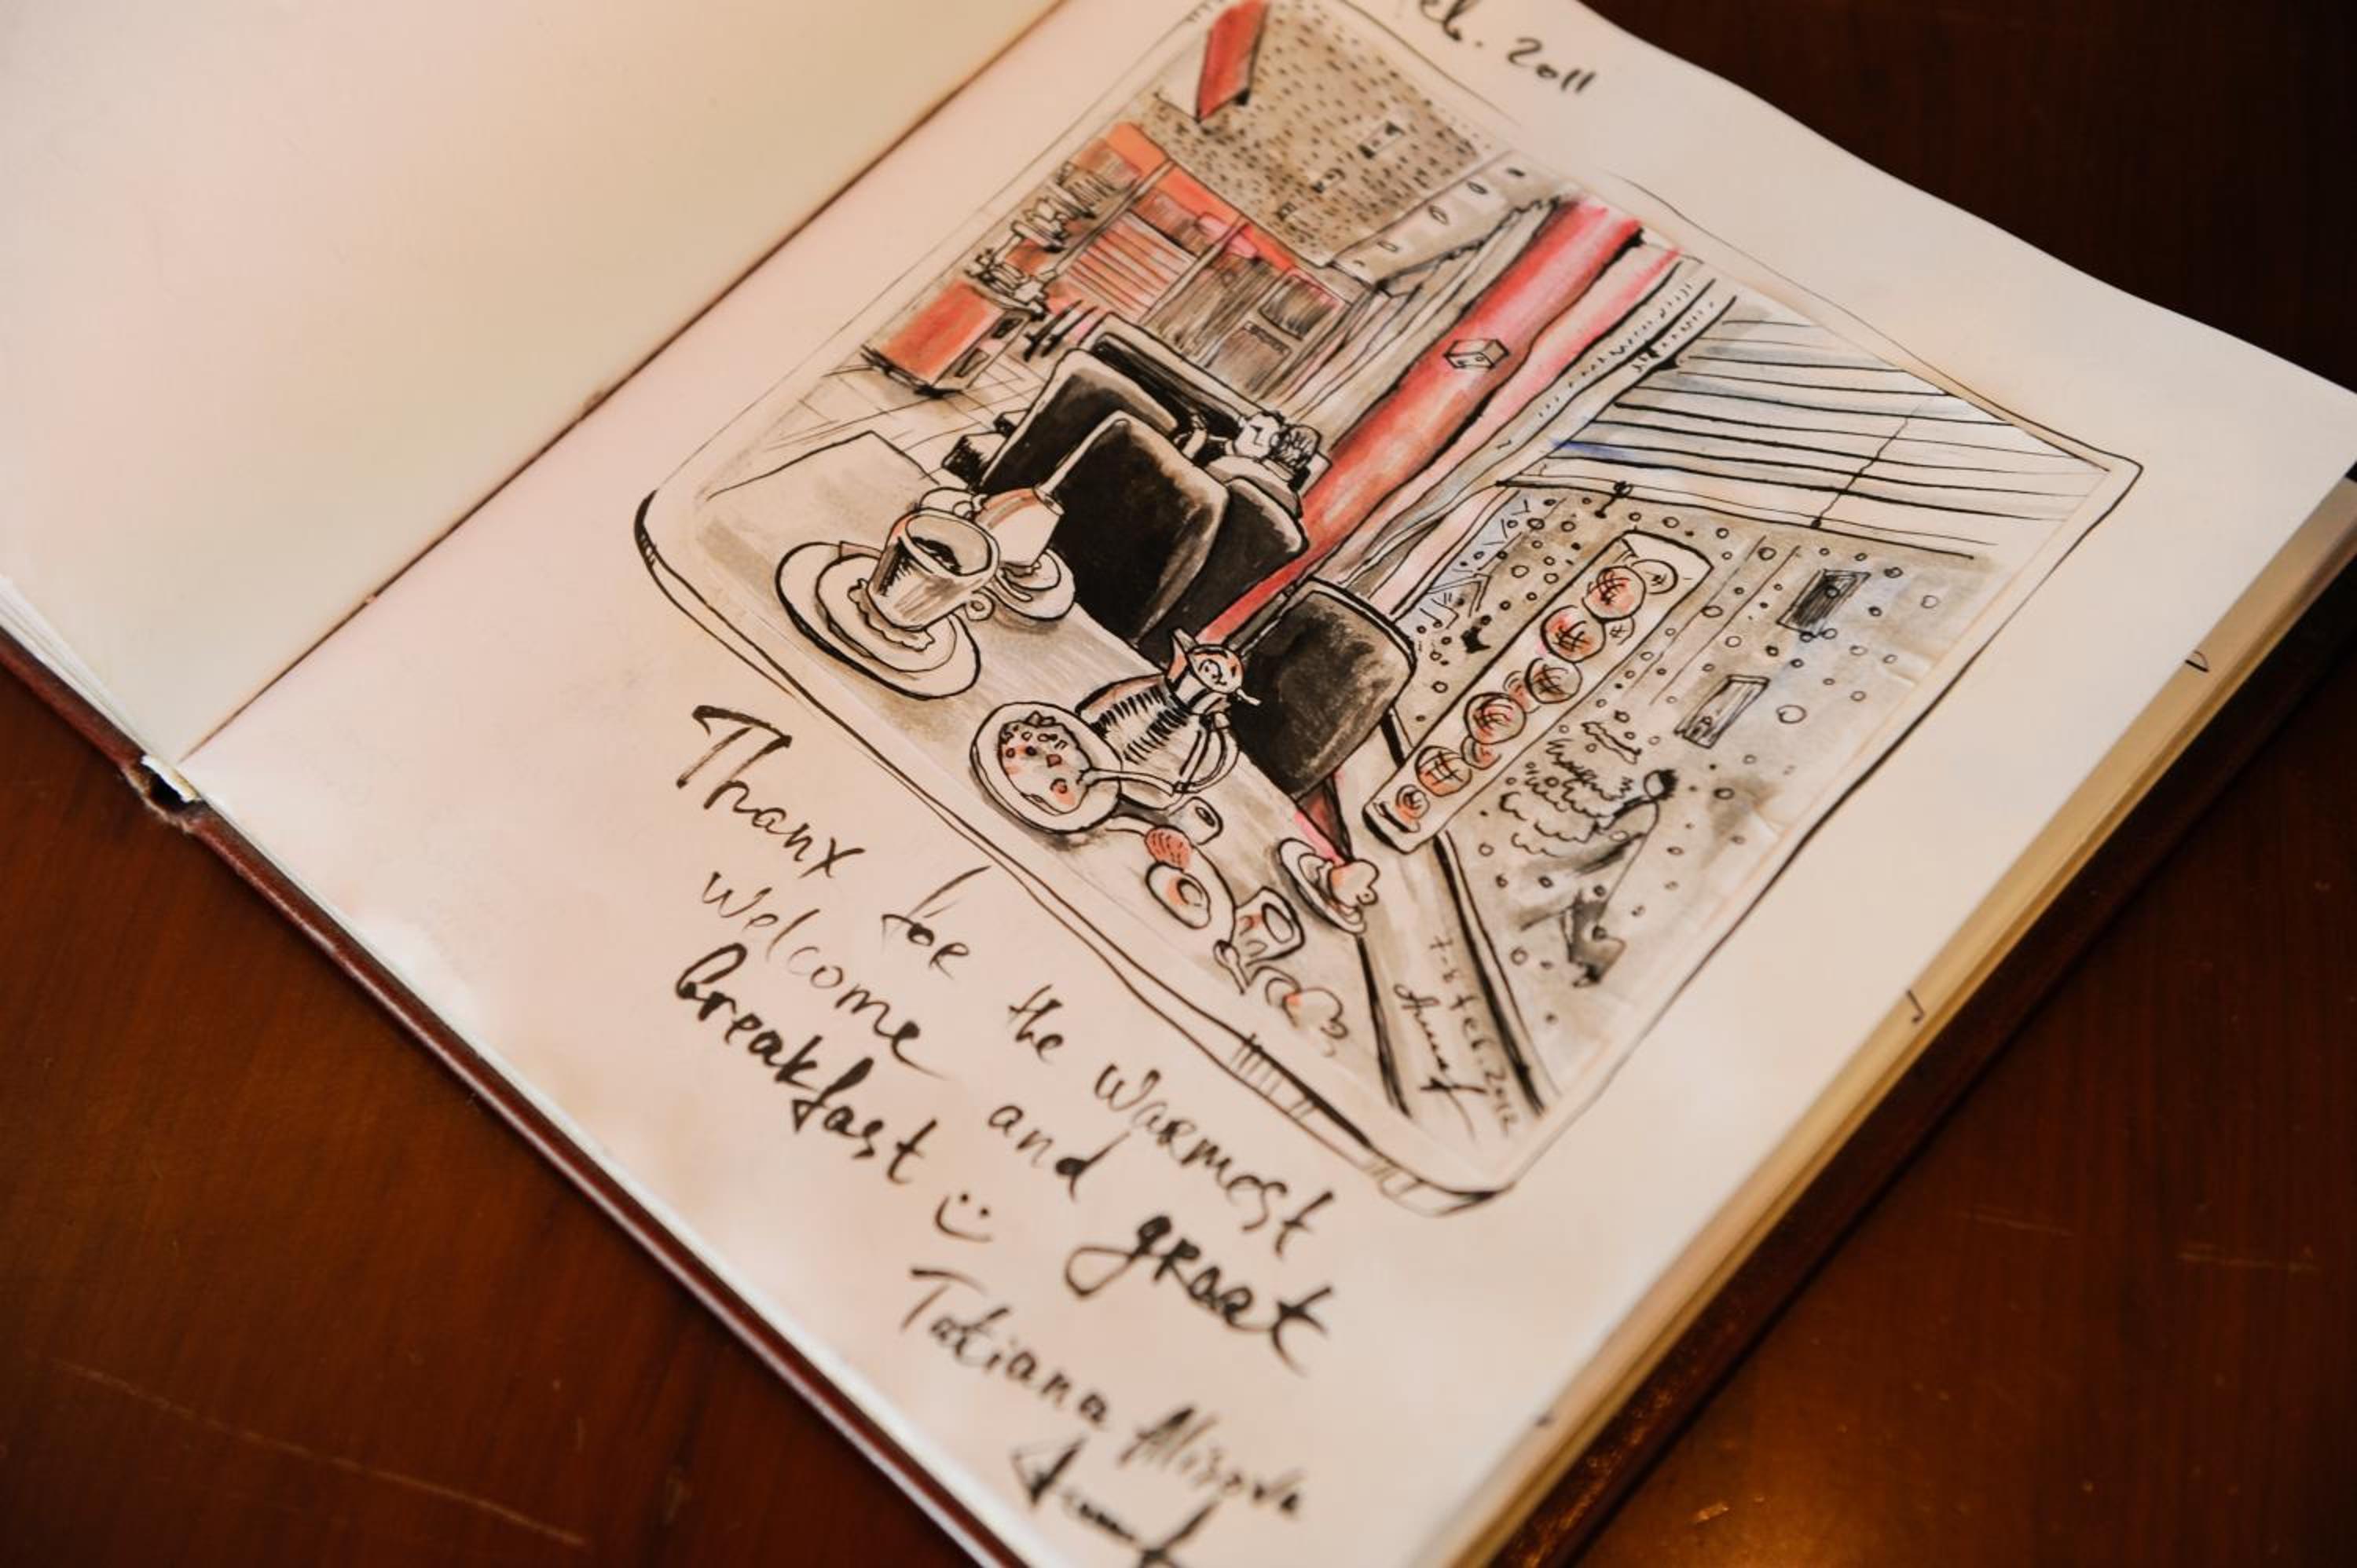 eb. 2011
7-8 Feb. 2012
Thanx for the warmest
welcome and great
breakfast :)
Tatiana